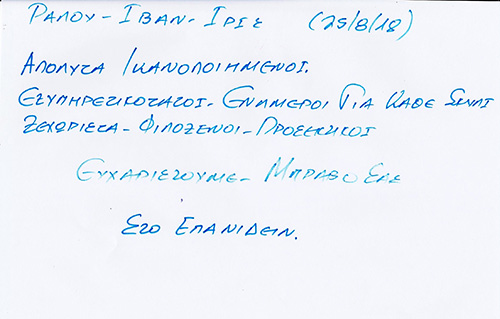 ΡΑΛΟΥ - ΙΒΑΝ - ΙΡΙΣ (25/8/18)
ΑΠΟΛΥΤΑ ΙΚΑΝΟΠΟΙΗΜΕΝΟΙ.
ΕΞΥΠΗΡΕΤΙΚΟΤΑΤΟΙ - ΕΝΗΜΕΡΟΙ ΓΙΑ ΚΑΘΕ
ΞΕΧΩΡΙΣΤΑ - ΦΙΛΟΞΕΝΟΙ - ΠΡΟΣΕΚΤΙΚΟΙ
ΕΥΧΑΡΙΣΤΟΥΜΕ - ΜΠΡΑΒΟ ΣΑΣ
ΣΤΟ ΕΠΑΝΙΔΕΙΝ.